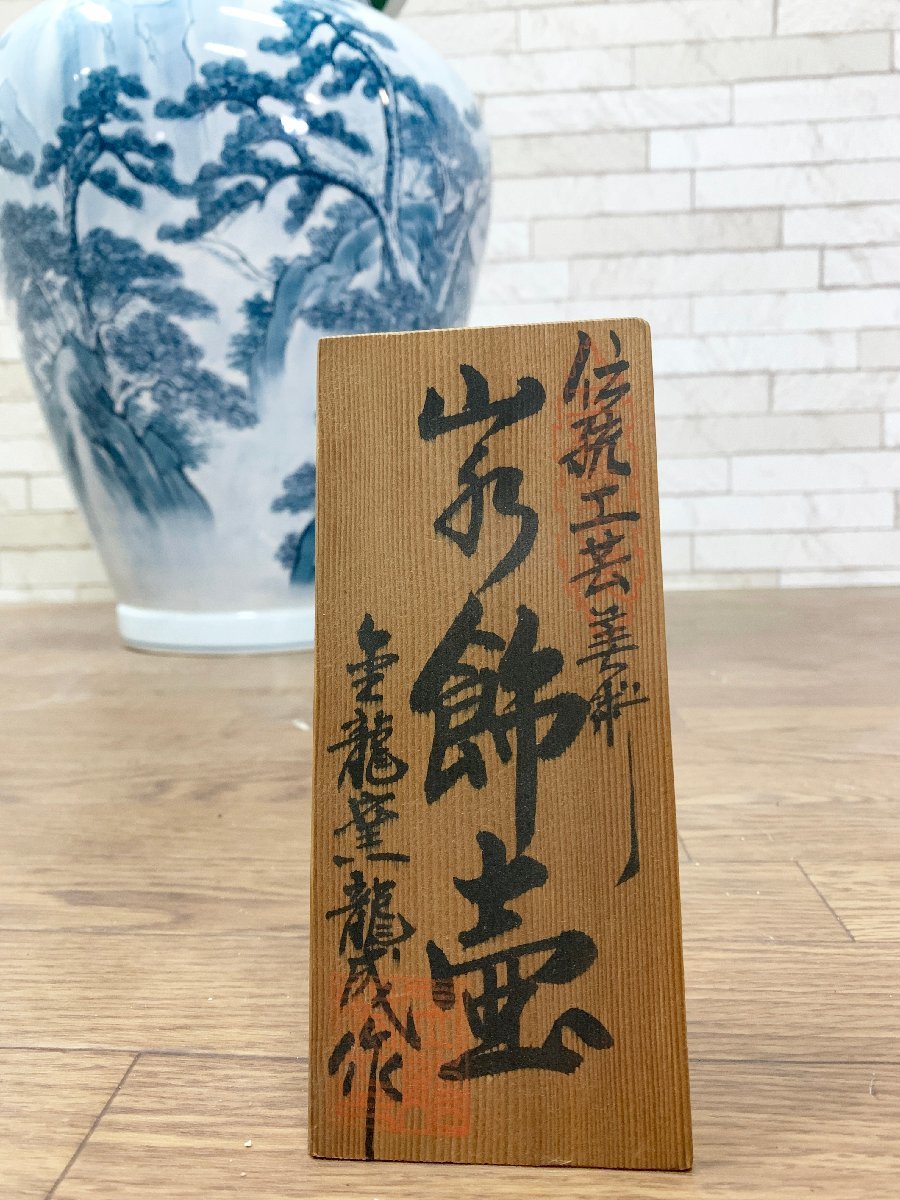 伝統工芸美術
山水飾壷
金龍窯龍成作